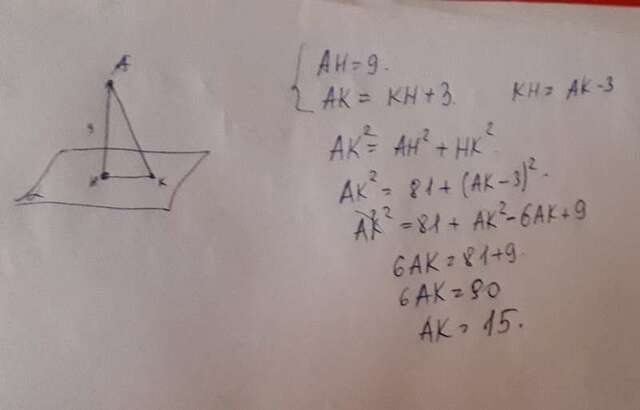 A
9
H K
α
AH = 9.
AK = KH + 3. KH = AK - 3
AK² = AH² + HK²
AK² = 81 + (AK - 3)².
AK² = 81 + AK² - 6AK + 9
6AK = 81 + 9.
6AK = 90
AK = 15.